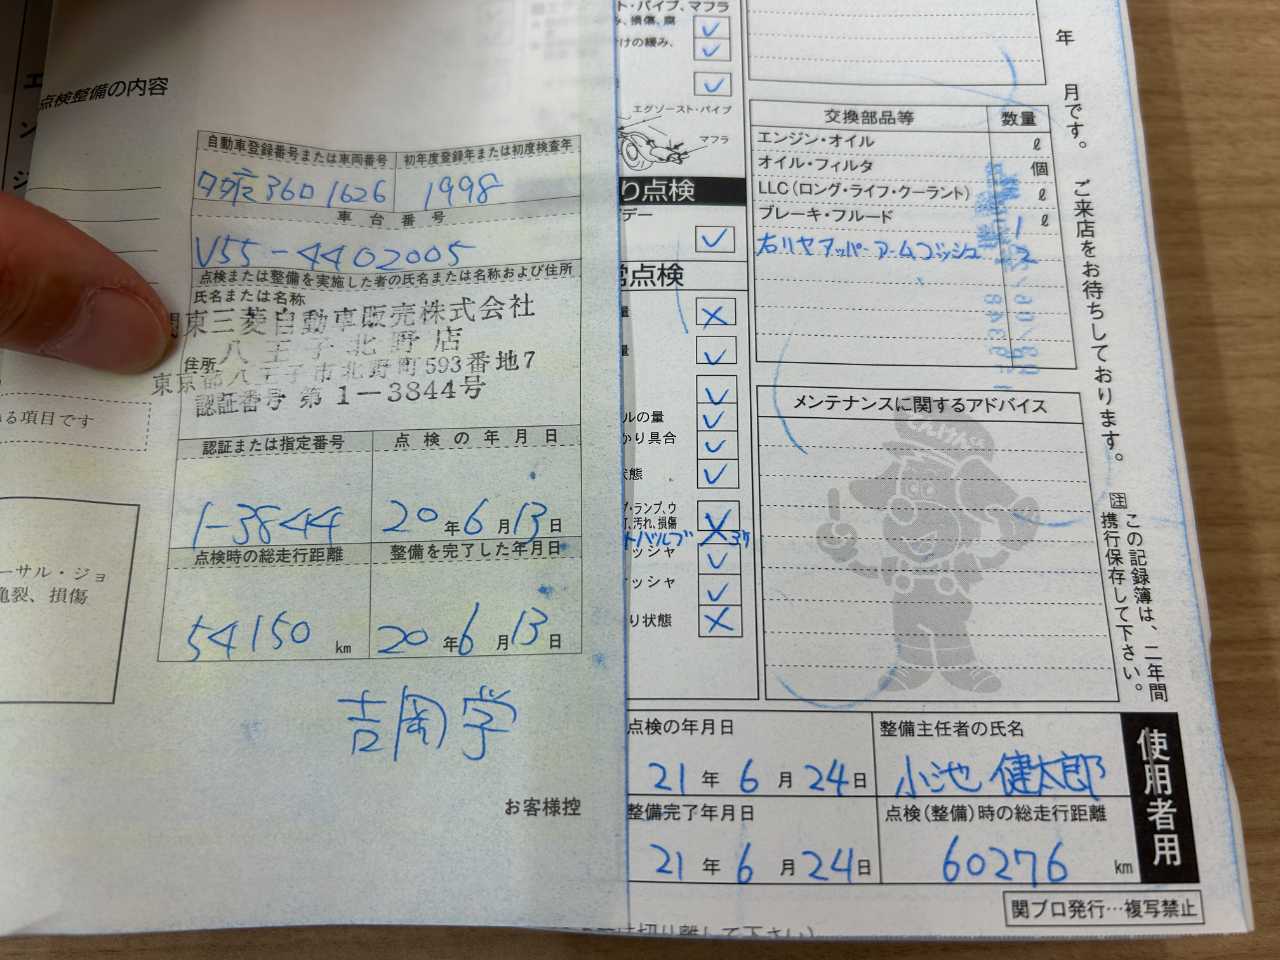 点検整備の内容
自動車登録番号または車両番号
初年度登録年または初度検査年
360 1626
1998
車台番号
V55-4402005
点検または整備を実施した者の氏名または名称および住所
氏名または名称
関東三菱自動車販売株式会社
八王子北野店
住所
東京都八王子市北野町593番地7
認証番号 第1-3844号
る項目です
認証または指定番号
点検の年月日
1-3844
20年6月13日
点検時の総走行距離
整備を完了した年月日
54150 km
20年6月13日
ーサル・ジョ
亀裂、損傷
吉岡学
お客様控
ト・パイプ、マフラ
み、損傷、腐
けの緩み、
エグゾースト・パイプ
マフラ
り点検
デー
常点検
量
量
ルの量
かり具合
状態
グ・ランプ、ウ
汚れ、損傷
トバルブ
ッシャ
ッシャ
り状態
交換部品等
数量
エンジン・オイル ℓ
オイル・フィルタ 個
LLC(ロング・ライフ・クーラント) ℓ
ブレーキ・フルード 1 ℓ
右リヤアッパーアームブッシュ 2
メンテナンスに関するアドバイス
てんけんくん
年
月です。
ご来店をお待ちしております。
注 この記録簿は、二年間
携行保存して下さい。
点検の年月日
21年6月24日
整備主任者の氏名
小池 健太郎
整備完了年月日
21年6月24日
点検(整備)時の総走行距離
60276 km
使用者用
関ブロ発行…複写禁止
切り離して下さい)